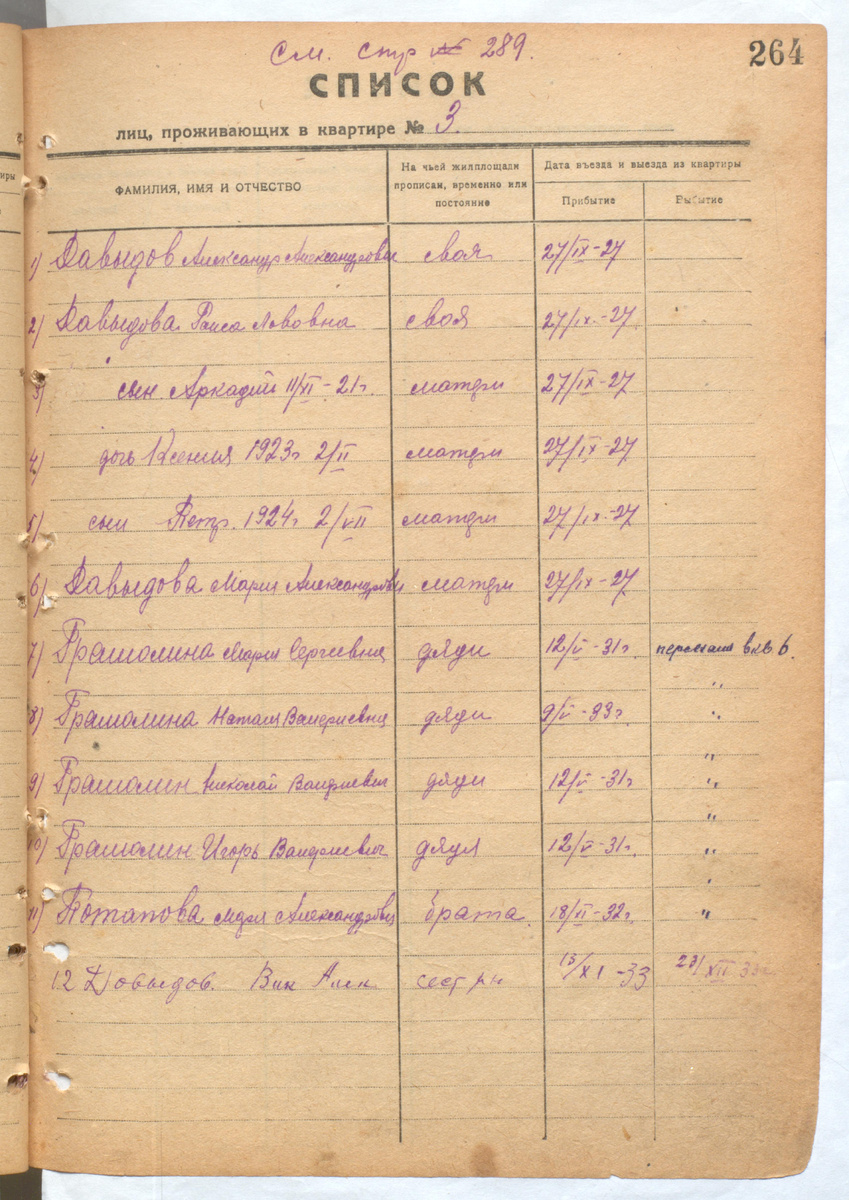 264
см. стр № 289.
СПИСОК
лиц, проживающих в квартире № 3.
ФАМИЛИЯ, ИМЯ И ОТЧЕСТВО
На чьей жилплощади прописан, временно или постояние
Дата въезда и выезда из квартиры
Прибытие
Выбытие
1) Давыдов Александр Александрович своя 27/IX-27
2) Давыдова Раиса Львовна своя 27/IX-27
3) сын Аркадий 11/XI-21г. матери 27/IX-27
4) дочь Ксения 1923г 2/II матери 27/IX-27
5) сын Петр. 1924г 2/VII матери 27/IX-27
6) Давыдова Мария Александровн матери 27/IX-27
7) Грамолина Мария Сергеевна дяди 12/V-31г. переехала в кв 6.
8) Грамолина Наталия Валериевна дяди 9/V-33г. "
9) Грамолин Николай Валериевич дяди 12/V-31г "
10) Грамолин Игорь Валериевич дяди 12/V-31г. "
11) Потапова Мария Александровн брата 18/XI-32г. "
12 Довыдов. Вик Алек сестры 13/XI-33 23/XII 33г